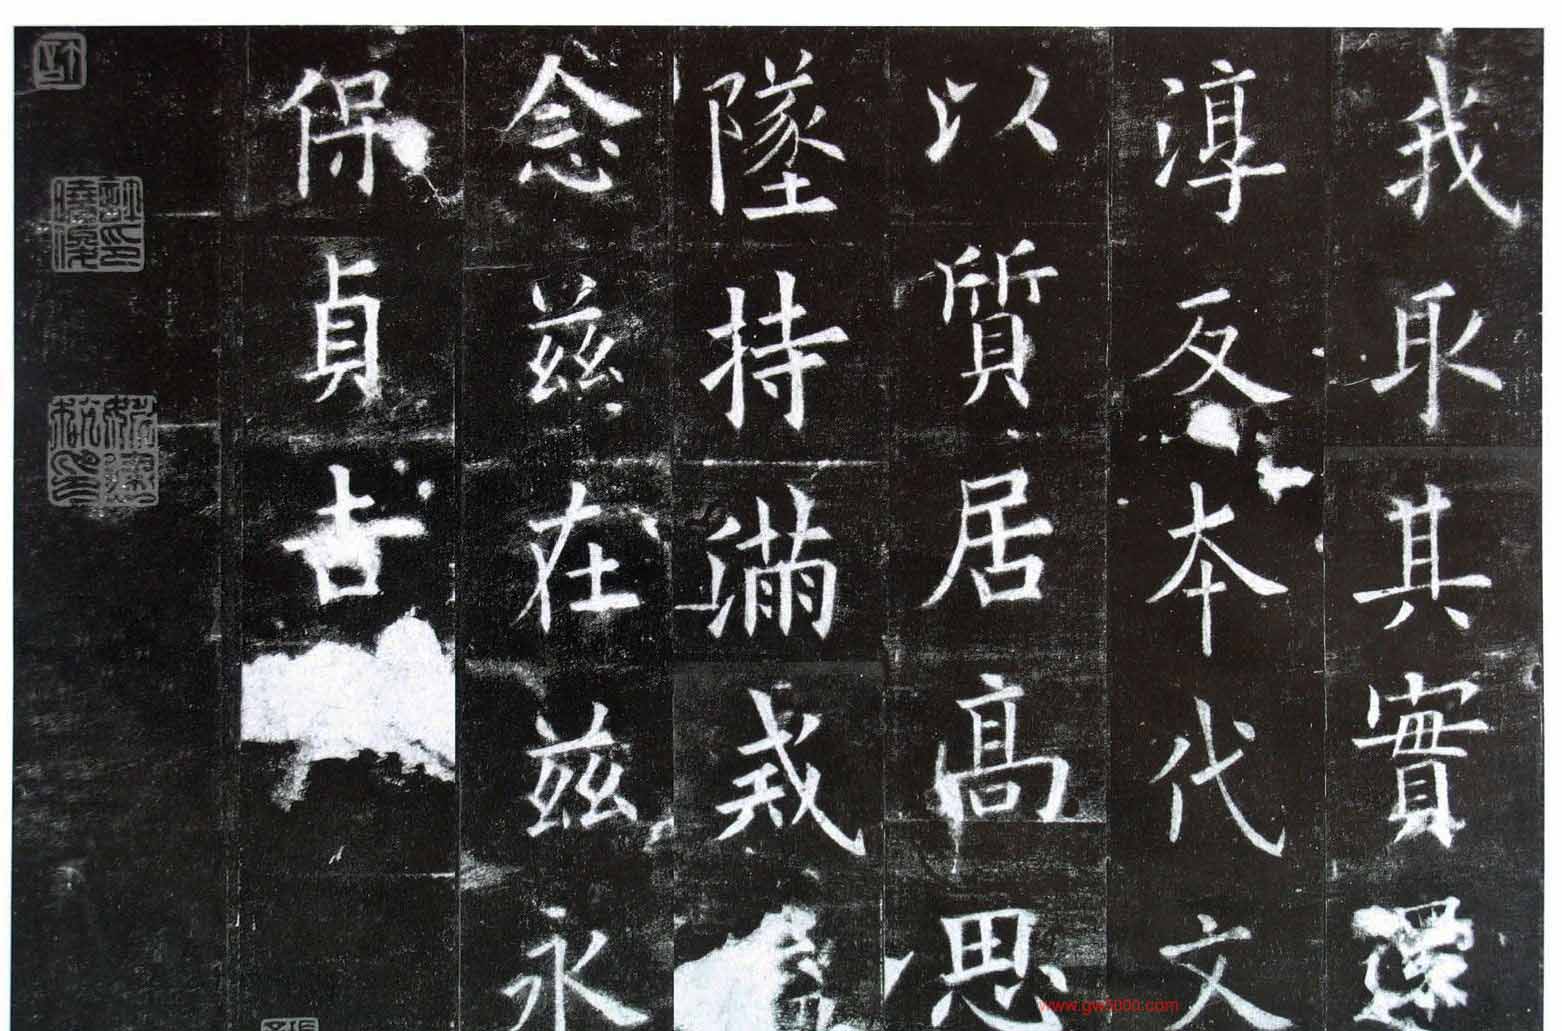 我取其實還
淳反本代文
以質居高思
墜持滿戒
念茲在茲永
保貞吉
www.gw5000.com